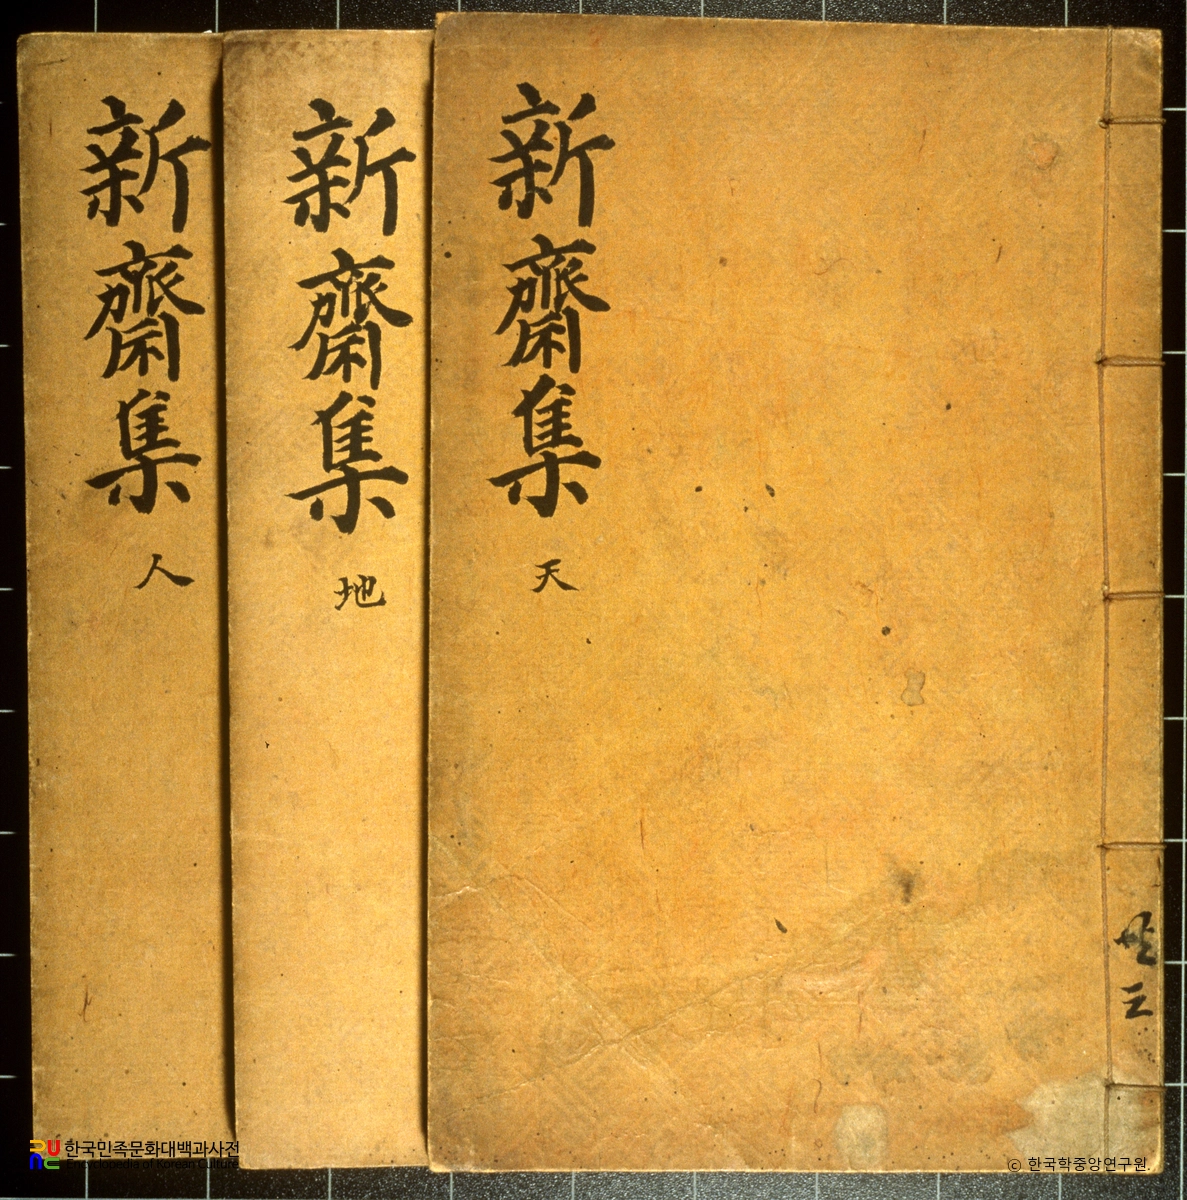 新齋集 天
共三
新齋集 地
新齋集 人
한국민족문화대백과사전
Encyclopedia of Korean Culture
© 한국학중앙연구원.